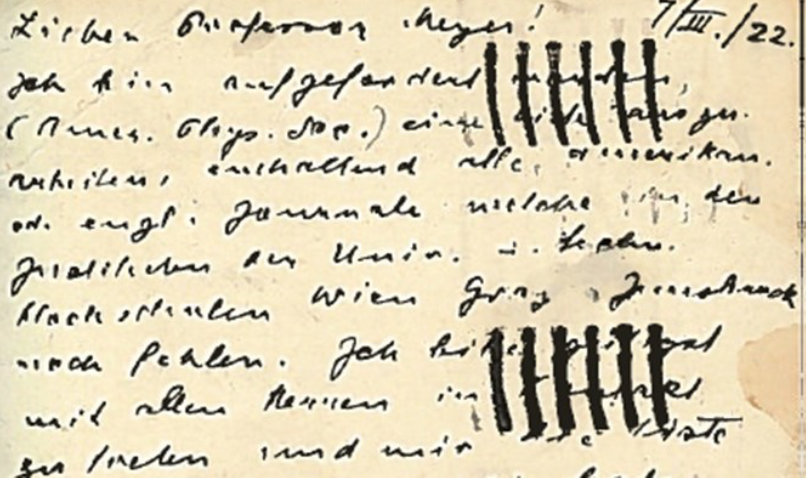 Lieber Professor Meyer! 7/III./22.
Ich bin aufgefordert worden,
(Amer. Phys. Soc.) eine Liste auszu-
arbeiten, enthaltend alle amerikan.
od. engl. Journale welche in den
Instituten der Univ. u. techn.
Hochschulen Wien Graz Innsbruck
noch fehlen. Ich bitte
mit allen Herren in
zu treten und mir die Liste